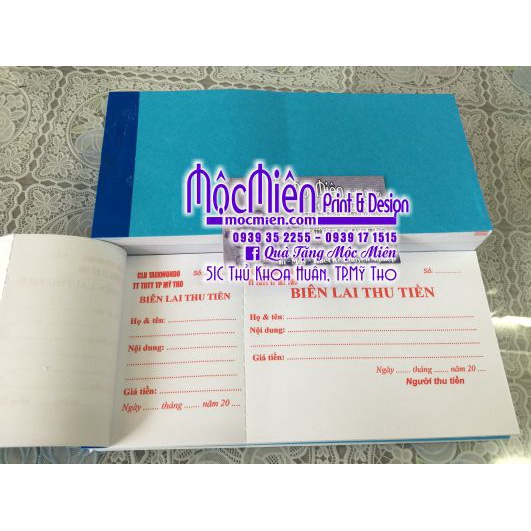 MộcMiên
Print & Design
mocmien.com
0939 35 2255 - 0939 17 1515
Quà Tặng Mộc Miên
51C Thủ Khoa Huân, TP.Mỹ Tho
CLB TAEKWONDO
TT TDTT TP MỸ THO
Số
BIÊN LAI THU TIỀN
Họ & tên:
Nội dung:
Giá tiền:
Ngày ....... tháng ....... năm 20 ....
Số:
TT TDTT TP MỸ THO
BIÊN LAI THU TIỀN
Họ & tên:
Nội dung:
Giá tiền:
Ngày ....... tháng ....... năm 20 ....
Người thu tiền